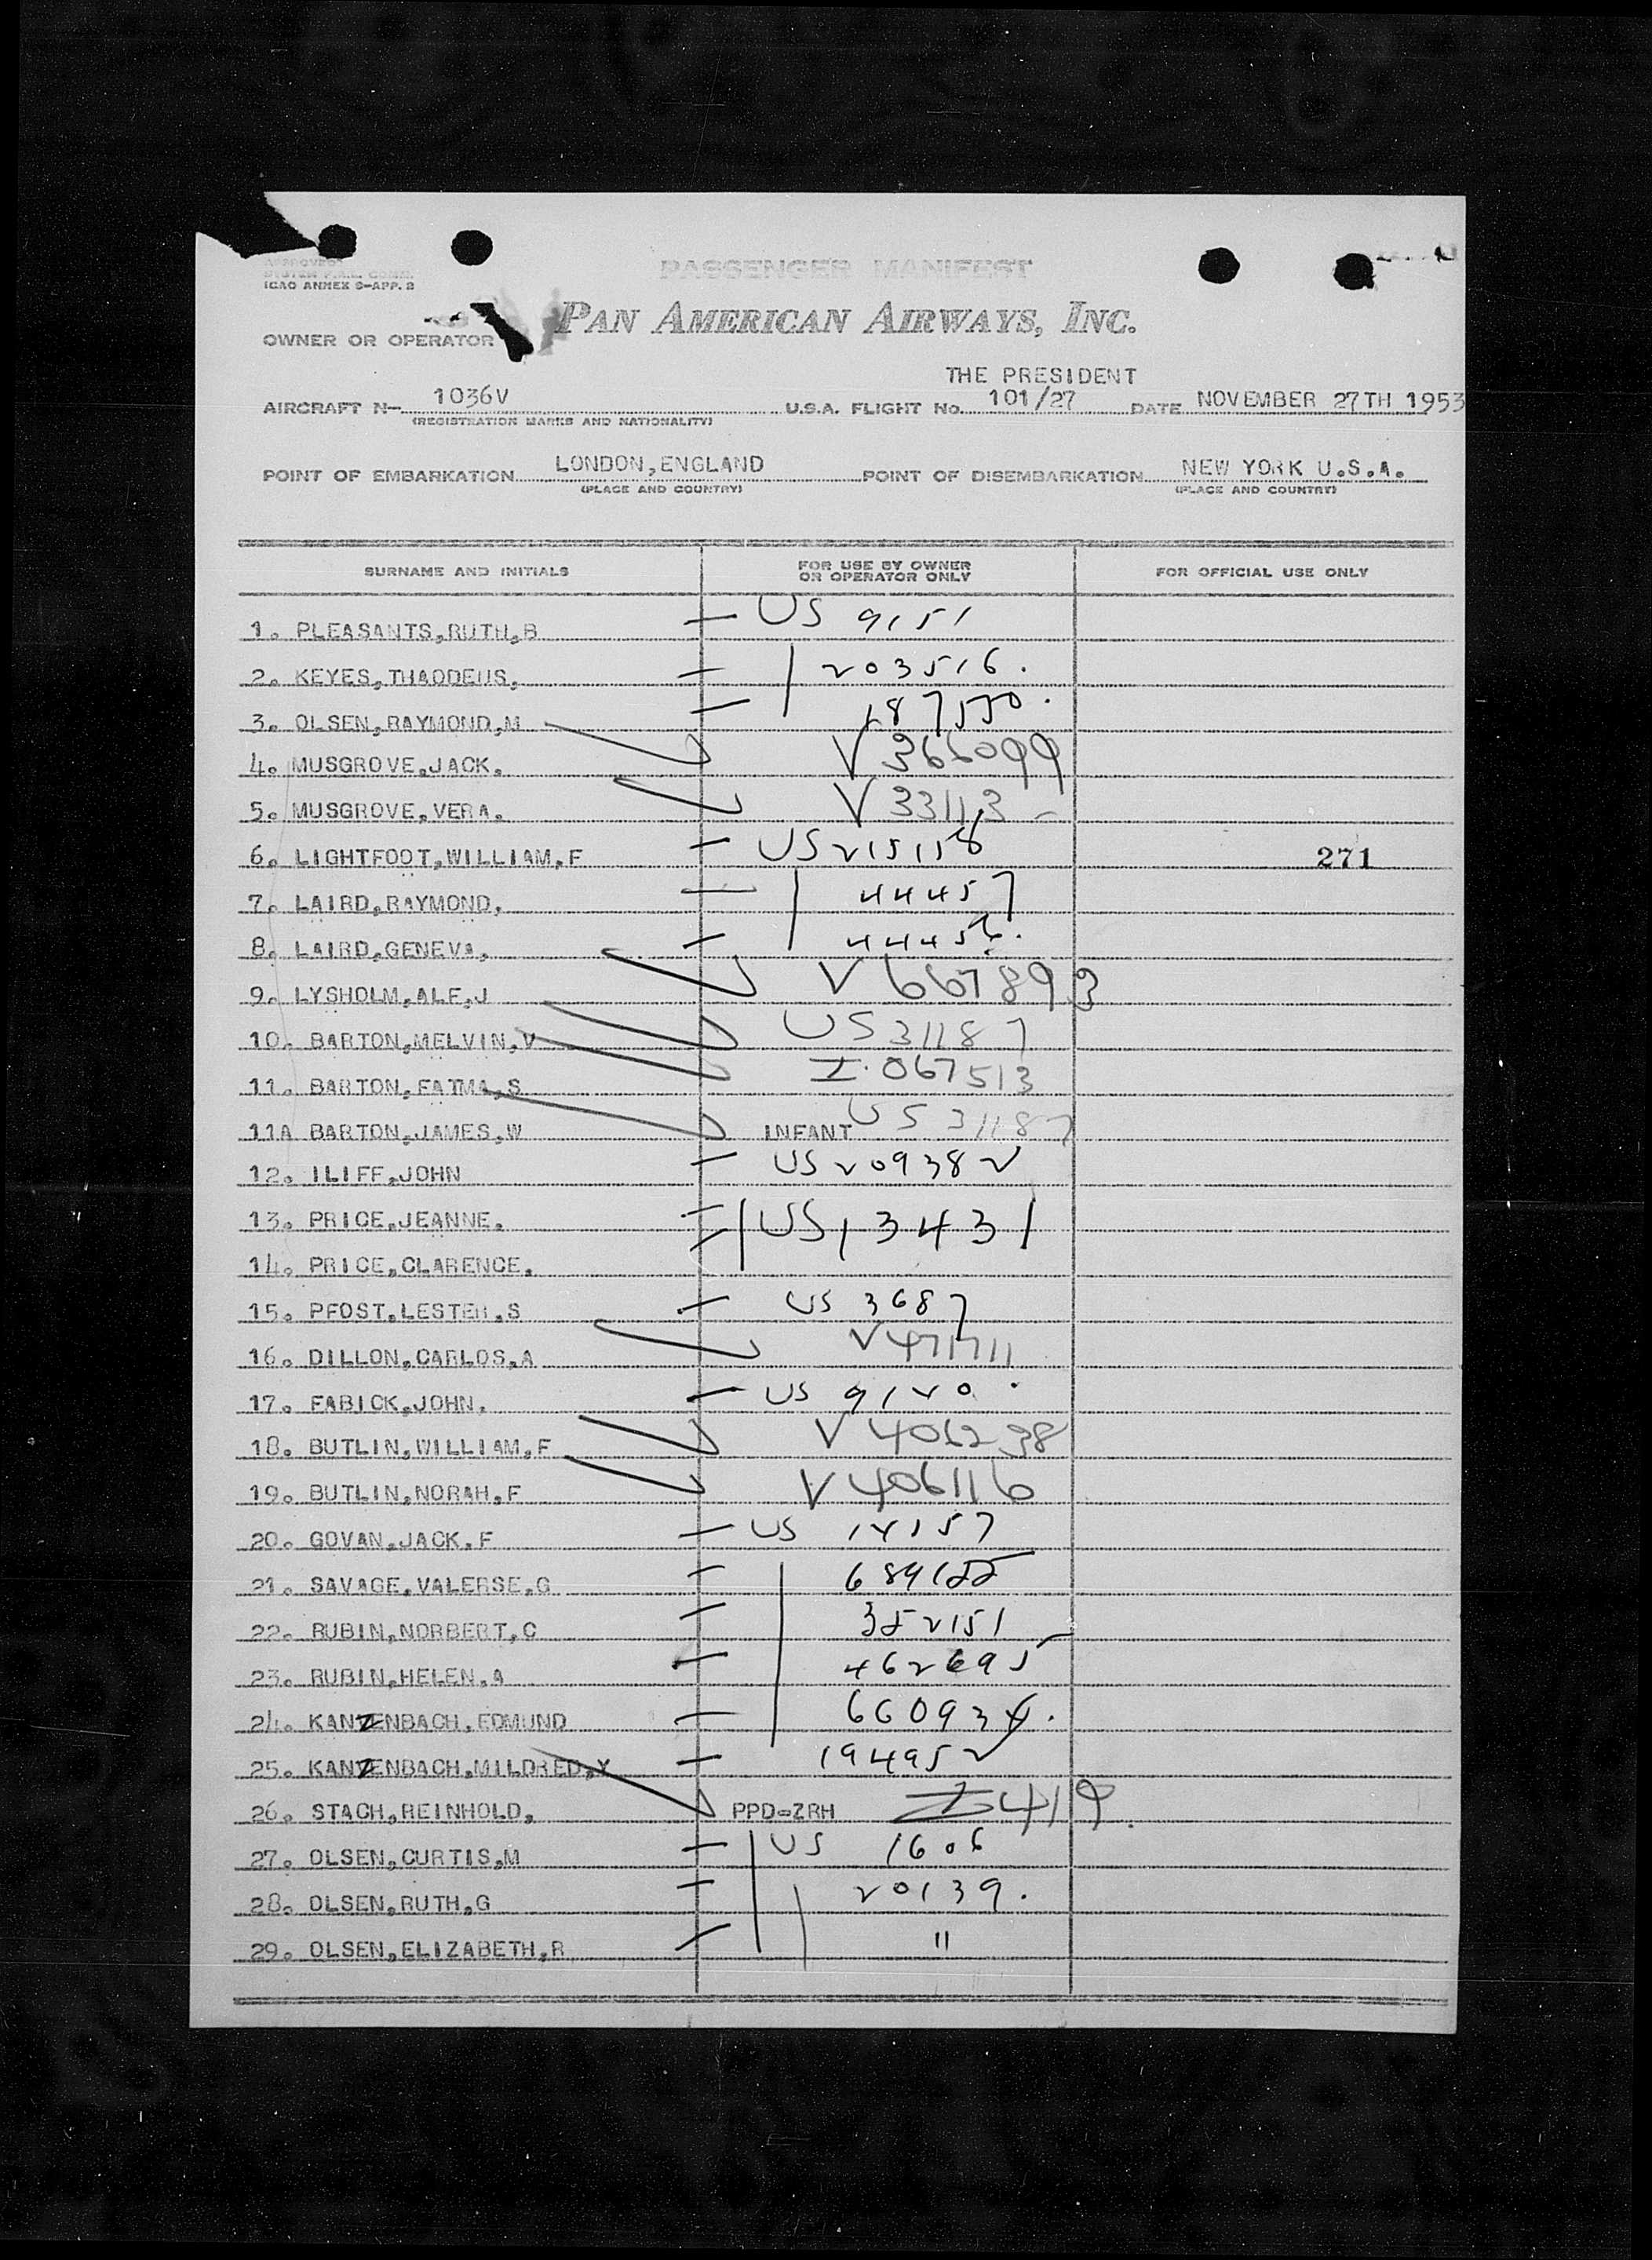 APPROVED
SYSTEM F.A.L. COMM.
ICAO ANNEX 9-APP. 2
PASSENGER MANIFEST
OWNER OR OPERATOR PAN AMERICAN AIRWAYS, INC.
THE PRESIDENT
AIRCRAFT N- 1036V U.S.A. FLIGHT No. 101/27 DATE NOVEMBER 27TH 1953
(REGISTRATION MARKS AND NATIONALITY)
POINT OF EMBARKATION LONDON,ENGLAND POINT OF DISEMBARKATION NEW YORK U.S.A.
(PLACE AND COUNTRY) (PLACE AND COUNTRY)
SURNAME AND INITIALS FOR USE BY OWNER OR OPERATOR ONLY FOR OFFICIAL USE ONLY
1. PLEASANTS,RUTH,B — US 9151
2. KEYES,THADDEUS, — 203516.
3. OLSEN,RAYMOND,M —
4. MUSGROVE,JACK. V 366099
5. MUSGROVE,VERA. V 33113 -
6. LIGHTFOOT,WILLIAM,F — US 215158 271
7. LAIRD,RAYMOND. — 44457
8. LAIRD,GENEVA, — 44456.
9. LYSHOLM,ALF,J V 667893
10. BARTON,MELVIN,V US 31187
11. BARTON,FATMA,S I.067513
11A BARTON,JAMES,W INFANT US 31187
12. ILIFF,JOHN — US 209382
13. PRICE,JEANNE. — US 13431
14. PRICE,CLARENCE. —
15. PFOST,LESTER,S — US 3687
16. DILLON,CARLOS,A V 471711
17. FABICK,JOHN. — US 9120.
18. BUTLIN,WILLIAM,F V 406238
19. BUTLIN,NORAH,F V 406116
20. GOVAN,JACK,F — US 14157
21. SAVAGE,VALERSE,G — 689122
22. RUBIN,NORBERT,C — 352151
23. RUBIN,HELEN,A — 462695
24. KANZENBACH,EDMUND — 660934.
25. KANZENBACH,MILDRED,Y — 194952
26. STACH,REINHOLD, PPD=ZRH I 419.
27. OLSEN,CURTIS,M — US 1606
28. OLSEN,RUTH,G — 20139.
29. OLSEN,ELIZABETH,R — "